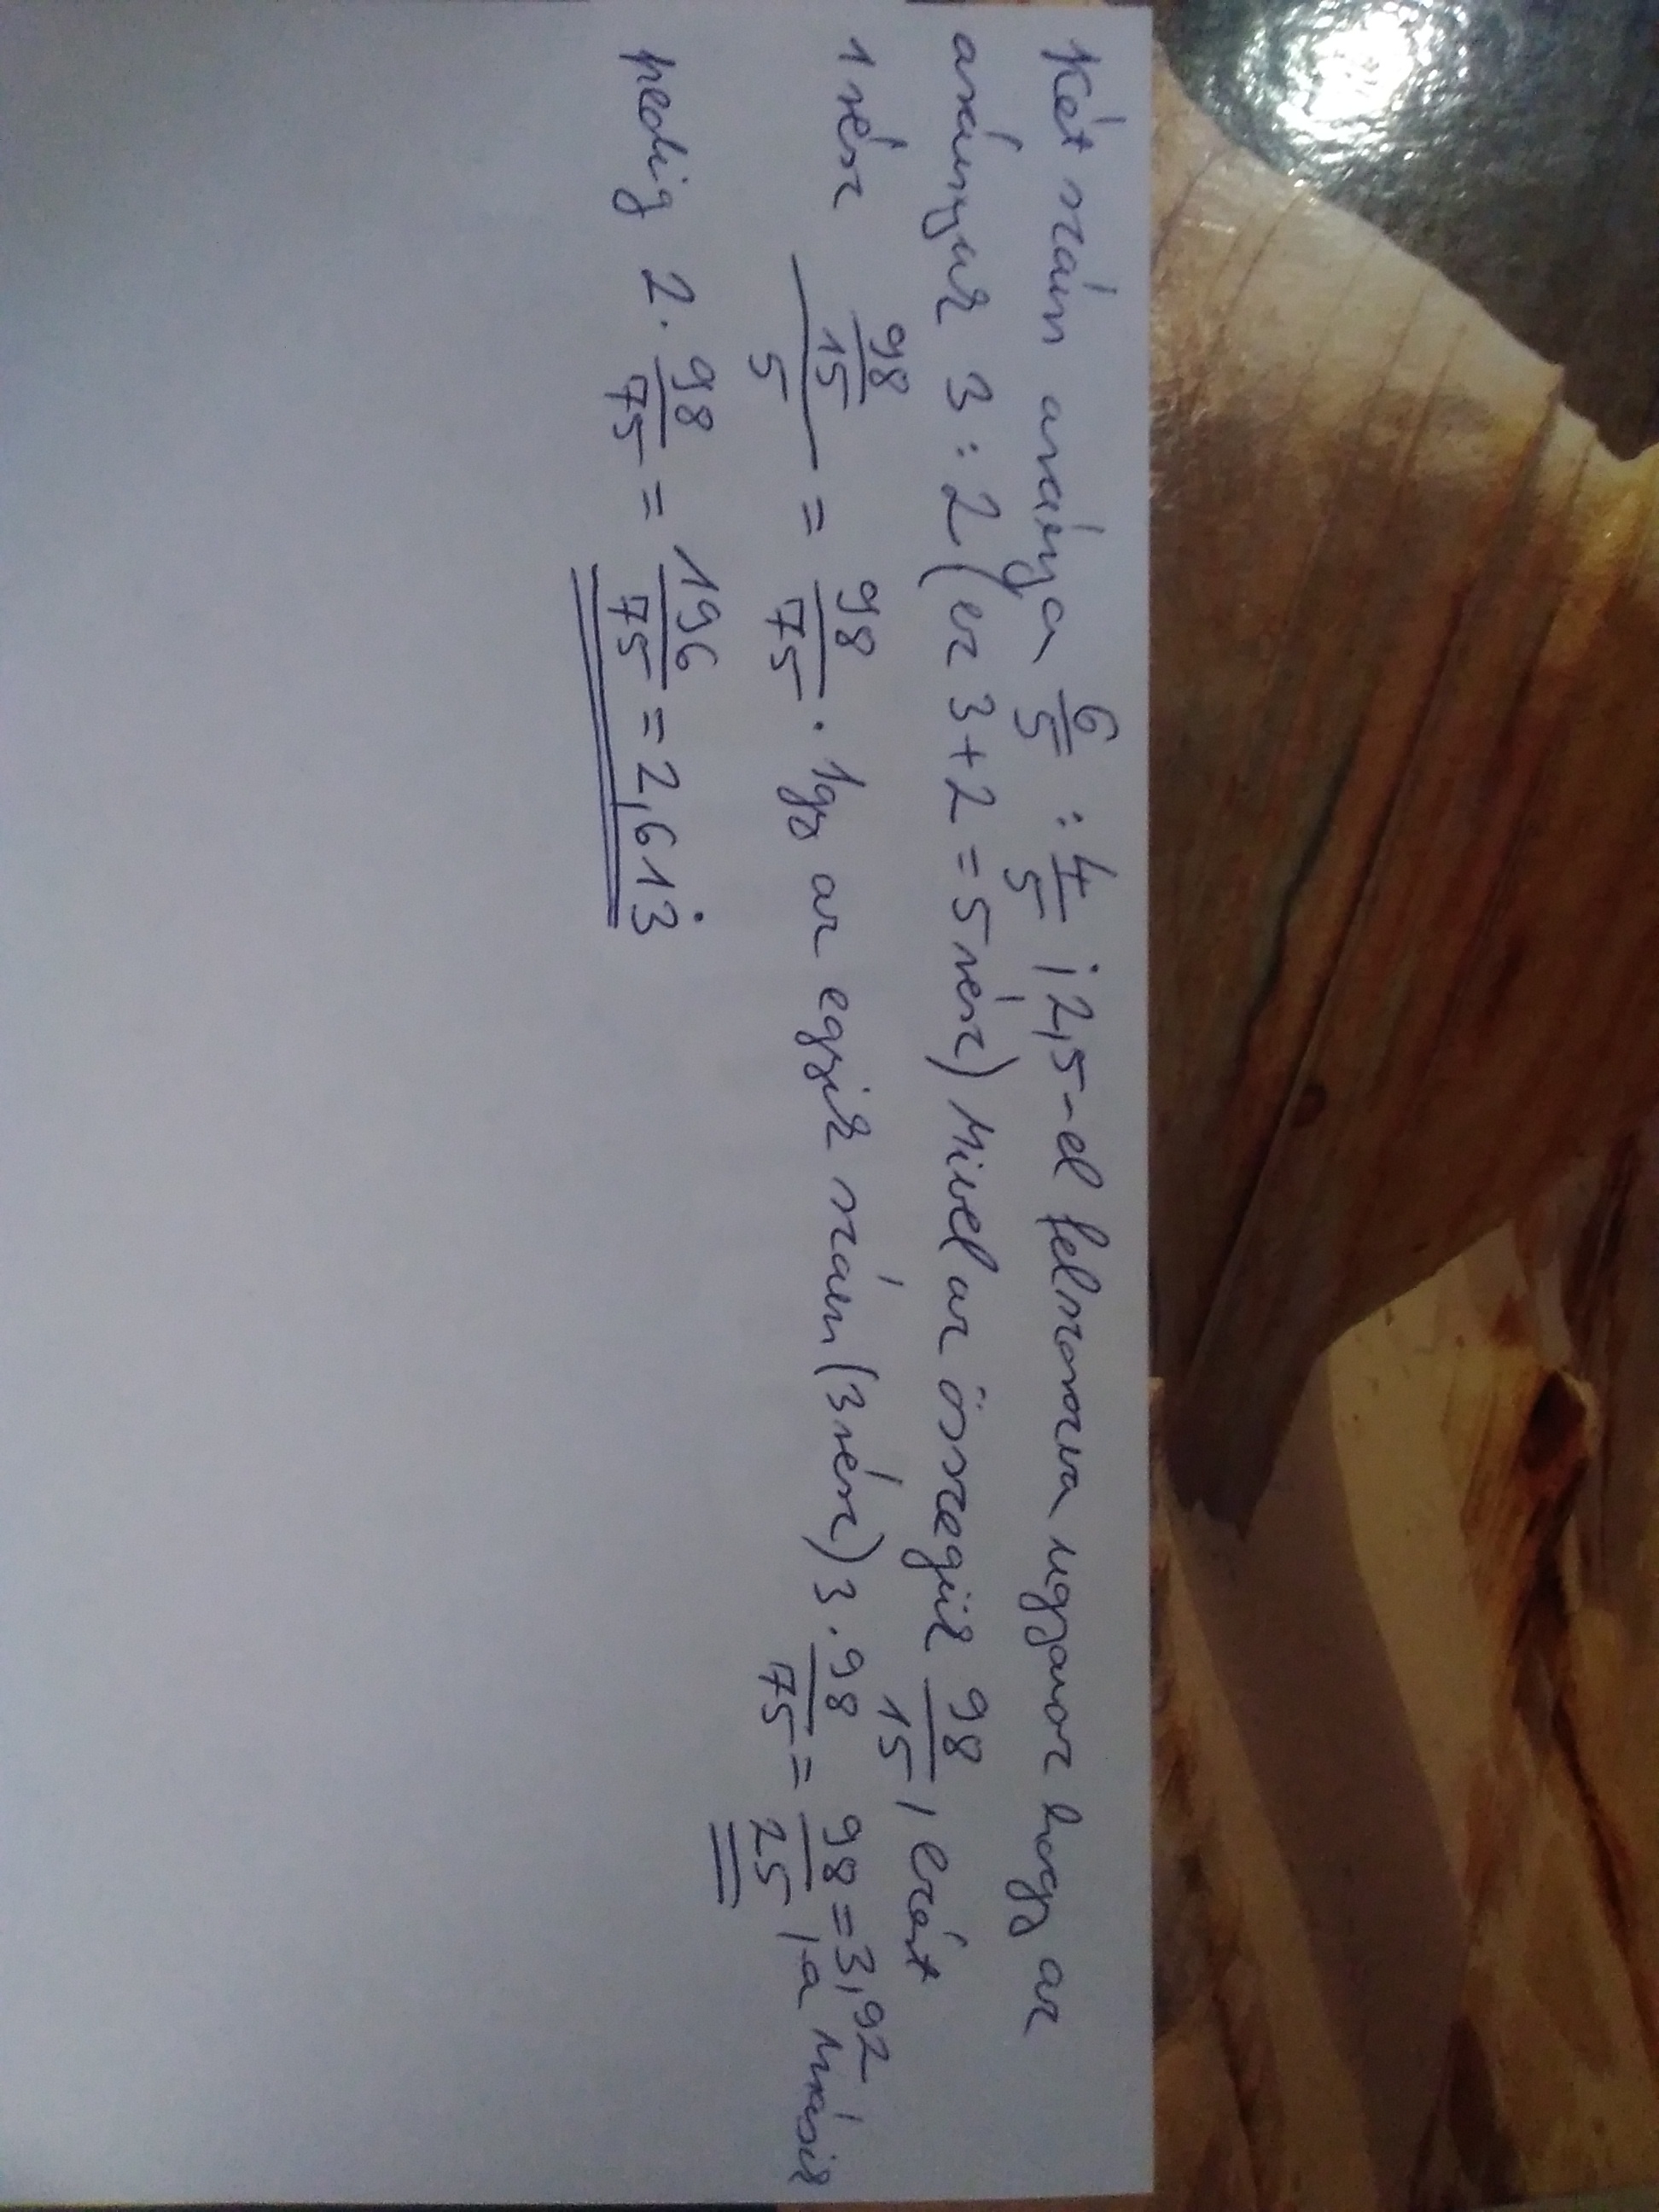 Két szám aránya 6/5 : 4/5 ; 2,5-el felszorozva ugyanaz hogy az
arányuk 3 : 2 (ez 3+2 = 5 rész) Mivel az összegük 98/15, ezért
1 rész (98/15)/5 = 98/75. Igy az egyik szám (3 rész) 3 · 98/75 = 98/25 = 3,92, a másik
pedig 2 · 98/75 = 196/75 = 2,613̇